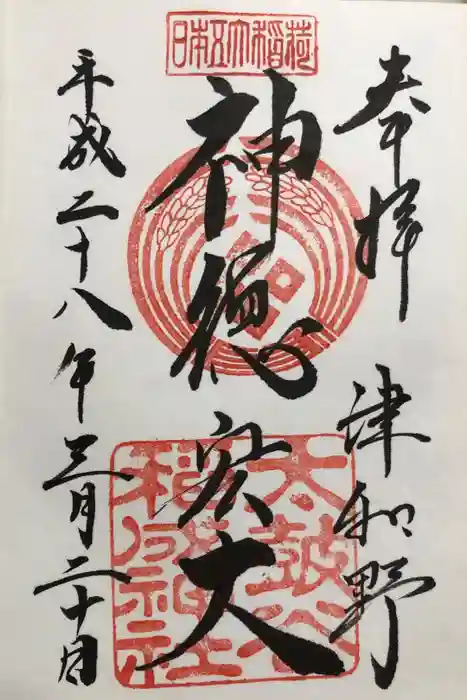 奉拝 津和野
日本五大稲荷
神徳宏大
太皷谷
稲成神社
平成二十八年三月二十日